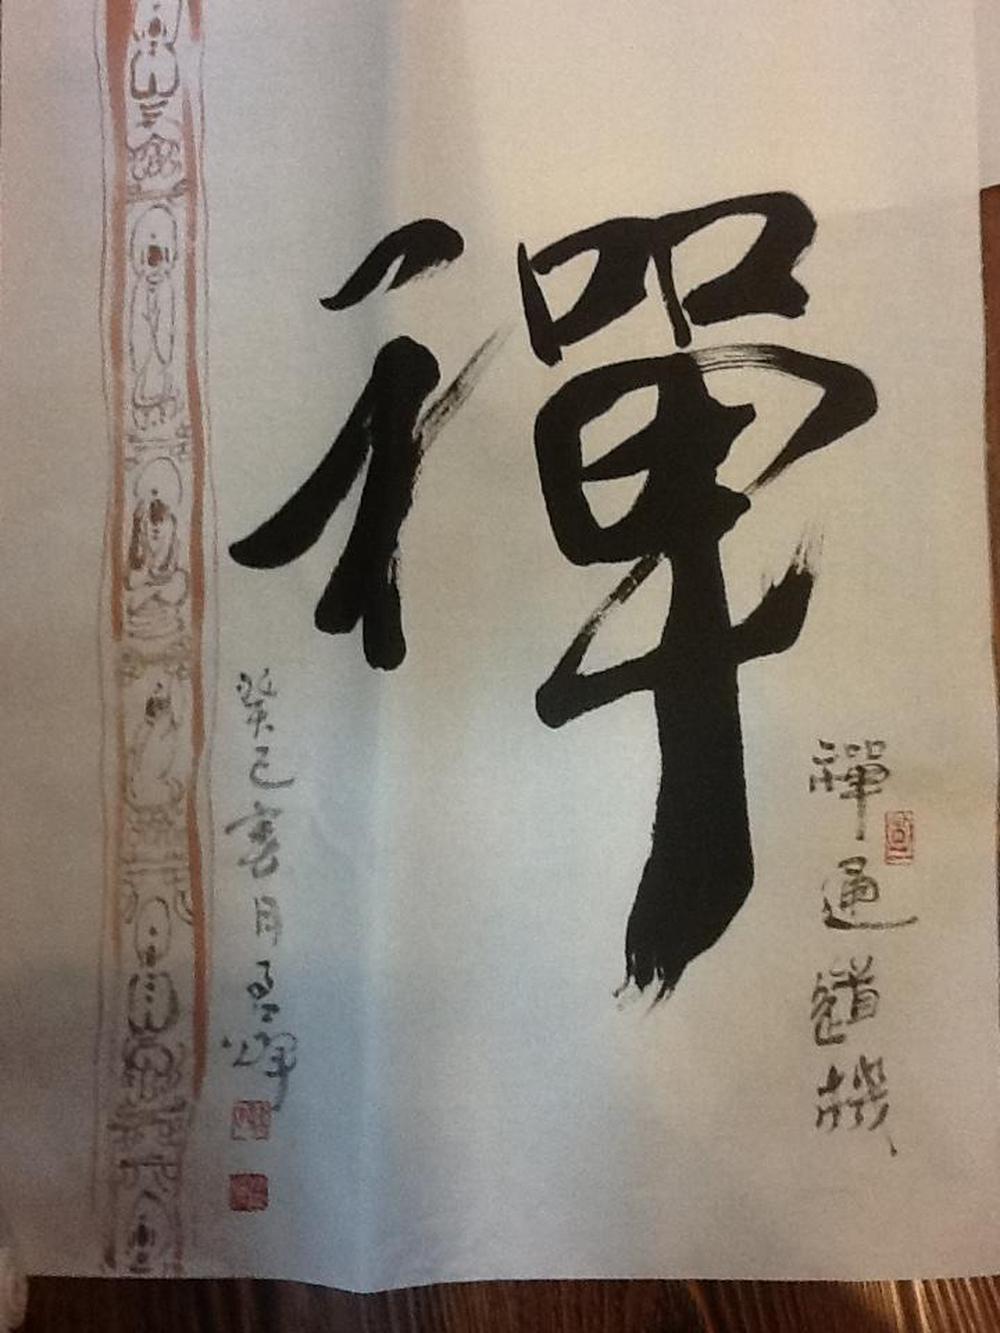 禪
禪通道機
癸巳書月